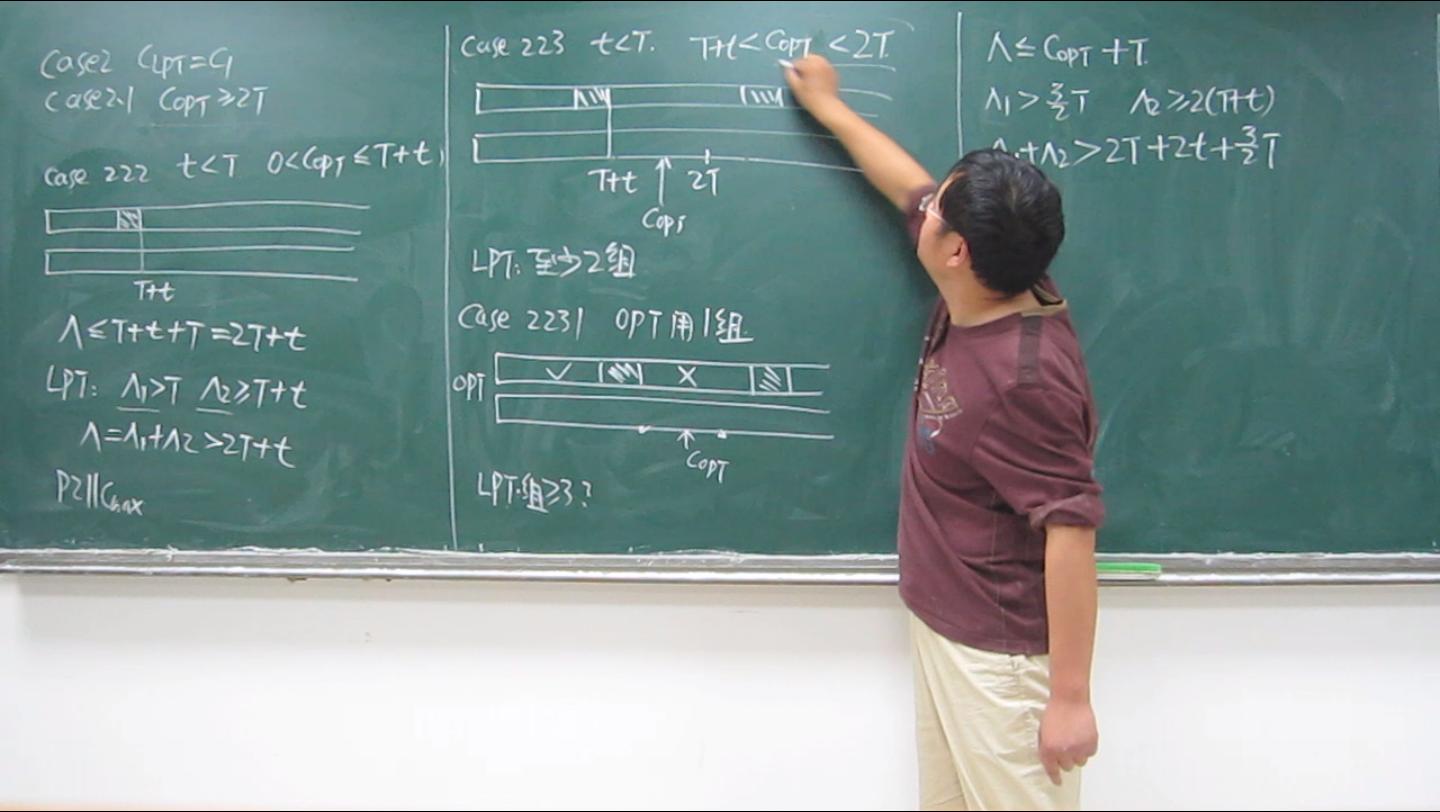 Case2 C_LPT=C_1
Case2.1 C_OPT≥2T
Case 222 t<T 0<C_OPT≤T+t
T+t
Λ≤T+t+T=2T+t
LPT: Λ_1>T Λ_2≥T+t
Λ=Λ_1+Λ_2>2T+t
P2||Cmax
Case 223 t<T. T+t<C_OPT<2T.
T+t 2T
C_OPT
LPT: 至少2组
Case 2231 OPT用1组
OPT ✓ ×
C_OPT
LPT:组≥3?
Λ≤C_OPT+T.
Λ_1>3/2T Λ_2≥2(T+t)
+Λ_2>2T+2t+3/2T